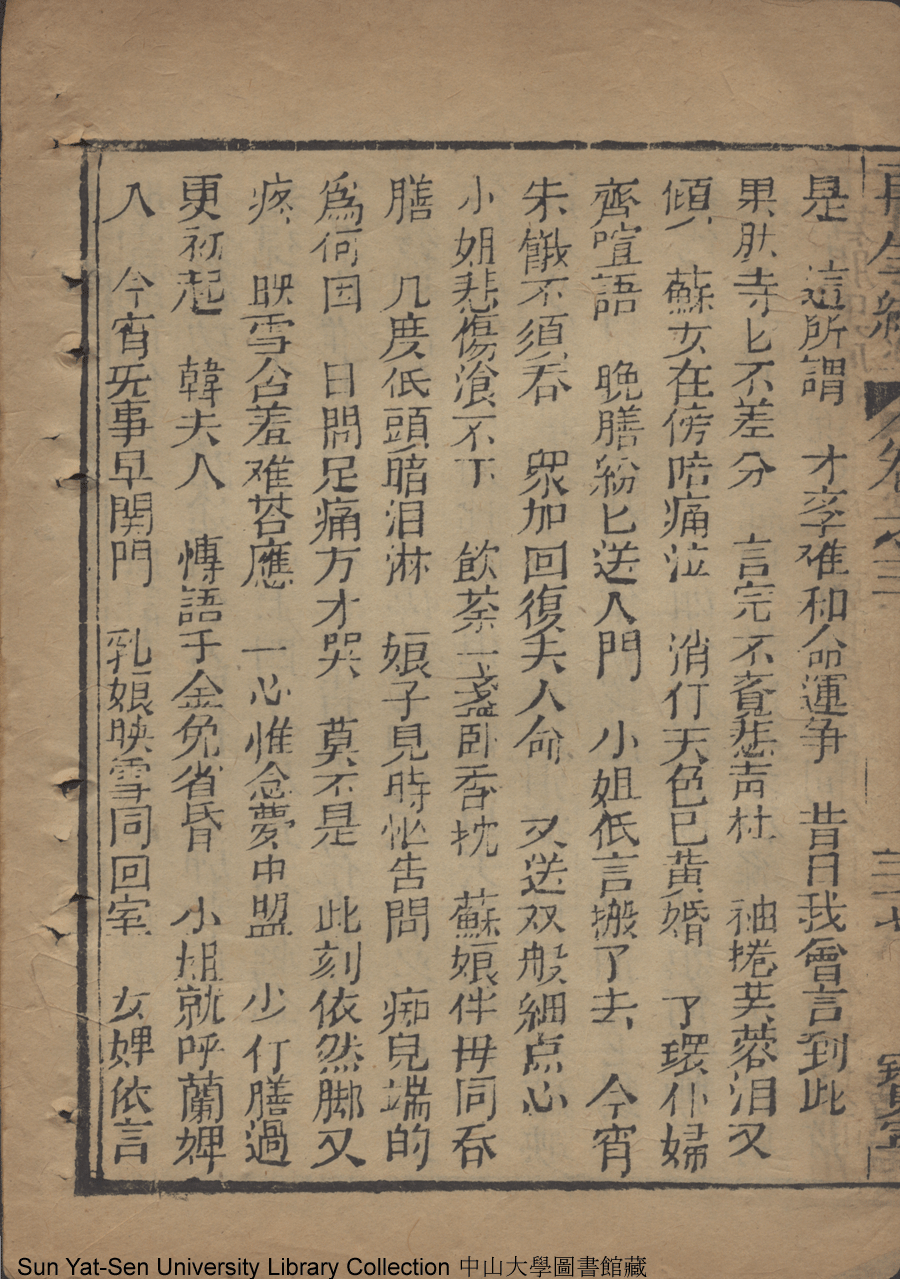 再生緣 卷之三
是 這所謂 才李难和命運爭 昔日我曾言到此
果肰寺匕不差分 言完不覔悲青杜 袖捲芙蓉泪又
傾 蘇女在傍陪痛泣 消仃天色已黃婚 了環仆婦
齊喧語 晚膳紛匕送人門 小姐低言搬了去 今宵
朱餓不須吞 眾加回復夫人命 又送双般細点心
小姐悲傷飡不下 飲茶一盞卧香枕 蘇娘伴毋同吞
膳 几度低頭暗泪淋 娘子見時忙告問 痴兒端的
為何因 日間足痛方才哭 莫不是 此刻依然脚又
疼 映雪含羞难荅應 一心惟念夢中盟 少仃膳過
更初起 韓夫人 慱語千金免省昏 小姐就呼蘭婢
入 今宵旡事早関門 乳娘映雪同回室 女婢依言
Sun Yat-Sen University Library Collection 中山大學圖書館藏